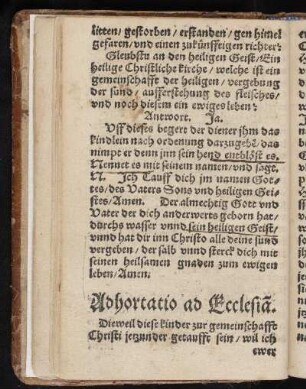 litten/ gestorben/ erstanden/ gen himel
gefaren/ vnd einen zukünfftigen richter?
Gleubstu an den heiligen Geist/ Ein
heilige Christliche kirche/ welche ist ein
gemeinschafft der heiligen/ vergebung
der sünd/ aufferstehung des fleisches/
vnd noch diesem ein ewiges leben?
Antwort. Ja.
Vff dieses begert der diener jhm das
kindlein nach ordenung darzugebẽ/ das
nimpt er denn jnn sein hend entblöst es.
Nennet es mit seinem namen/ vnd sagt.
N. Jch Tauff dich jm namen Got-
tes/ des Vaters Sons vnd heiligen Gei-
stes/ Amen. Der almechtig Gott vnd
Vater der dich anderwerts geborn hat/
durchs wasser vnnd sein heiligen Geist/
vnnd hat dir inn Christo alle deine sünd
vergeben/ der salb vnnd sterck dich mit
seinen heilsamen gnaden zum ewigen
leben/ Amen.
Adhortatio ad Ecclesiã.
Dieweil diese kinder zur gemeinschafft
Christi jetzunder getaufft sein/ wil ich
ewer